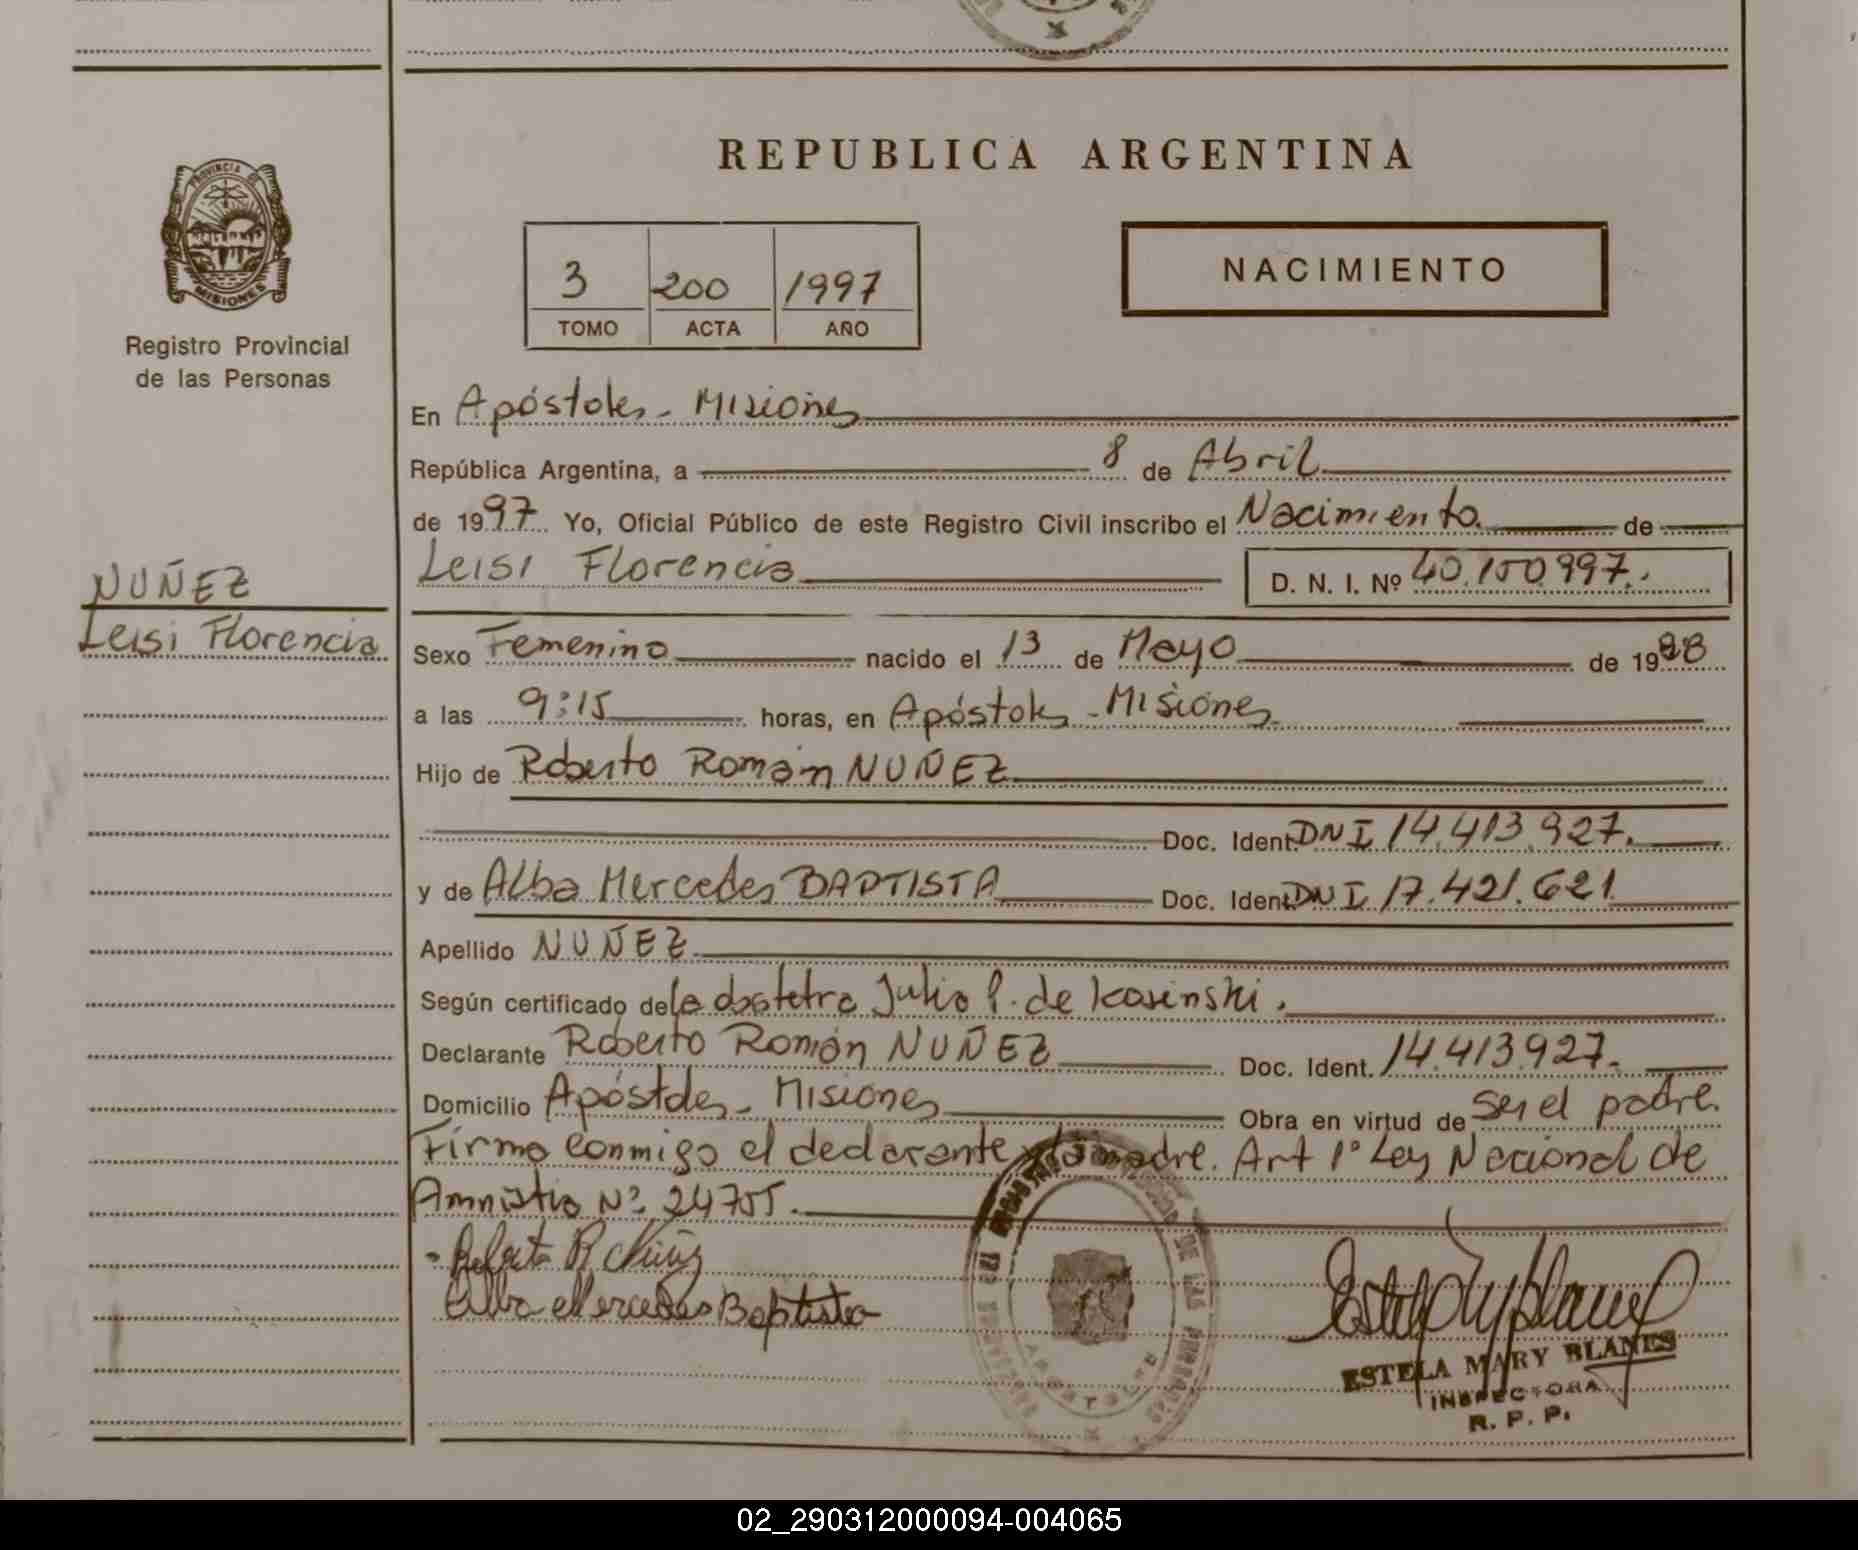 REPUBLICA ARGENTINA
PROVINCIA DE
MISIONES
Registro Provincial
de las Personas
3 200 1997
TOMO ACTA AÑO
NACIMIENTO
NUÑEZ
Leisi Florencia
En Apóstoles - Misiones
República Argentina, a 8 de Abril
de 1997 Yo, Oficial Público de este Registro Civil inscribo el Nacimiento de
Leisi Florencia D. N. I. Nº 40.150.997.
Sexo Femenino nacido el 13 de Mayo de 1988
a las 9:15 horas, en Apóstoles - Misiones
Hijo de Roberto Román NUÑEZ
Doc. Ident. DNI 14.413.927.
y de Alba Mercedes BAPTISTA Doc. Ident. DNI 17.421.621
Apellido NUÑEZ
Según certificado de la obstetra Julia P. de Kosinski.
Declarante Roberto Román NUÑEZ Doc. Ident. 14.413.927.
Domicilio Apóstoles - Misiones Obra en virtud de ser el padre.
Firma conmigo el declarante y la madre. Art 1º Ley Nacional de
Amnistia Nº 24755.
Roberto R Nuñez
Alba Mercedes Baptista
ESTELA MARY BLANES
INSPECTORA
R. P. P.
APOSTOLES
02_290312000094-004065